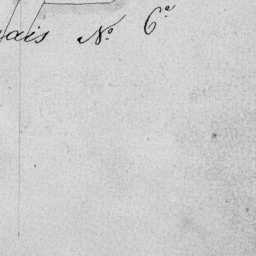 ais Nº 6º